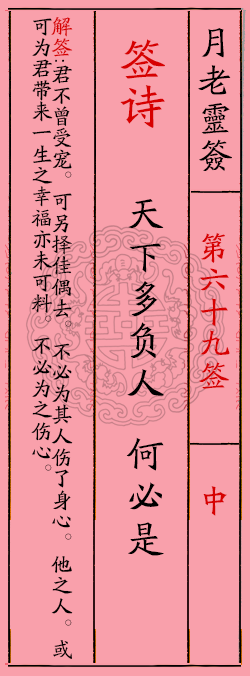 月老靈簽
第六十九签
中
签诗
天下多负人 何必是
解签:君不曾受宠。可另择佳偶去。不必为其人伤了身心。他之人。或
可为君带来一生之幸福亦未可料。不必为之伤心。